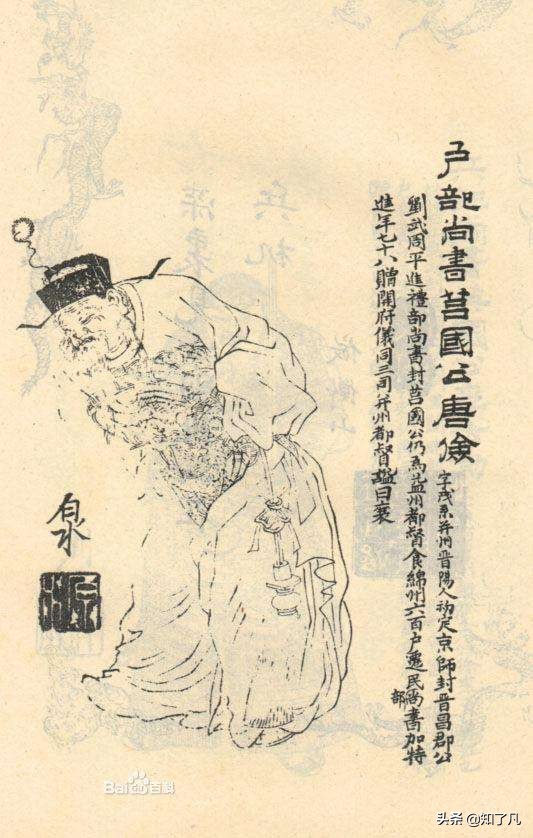 户部尚書莒國公唐儉
字茂系并州晉陽人初定京師封晉昌郡公
劉武周平進禮部尚書封莒國公仍為益州都督食綿州六百户遷民部尚書加特
進年七十八贈開府儀同三司并州都督謚曰襄
Baidu百科
头条 @知了凡